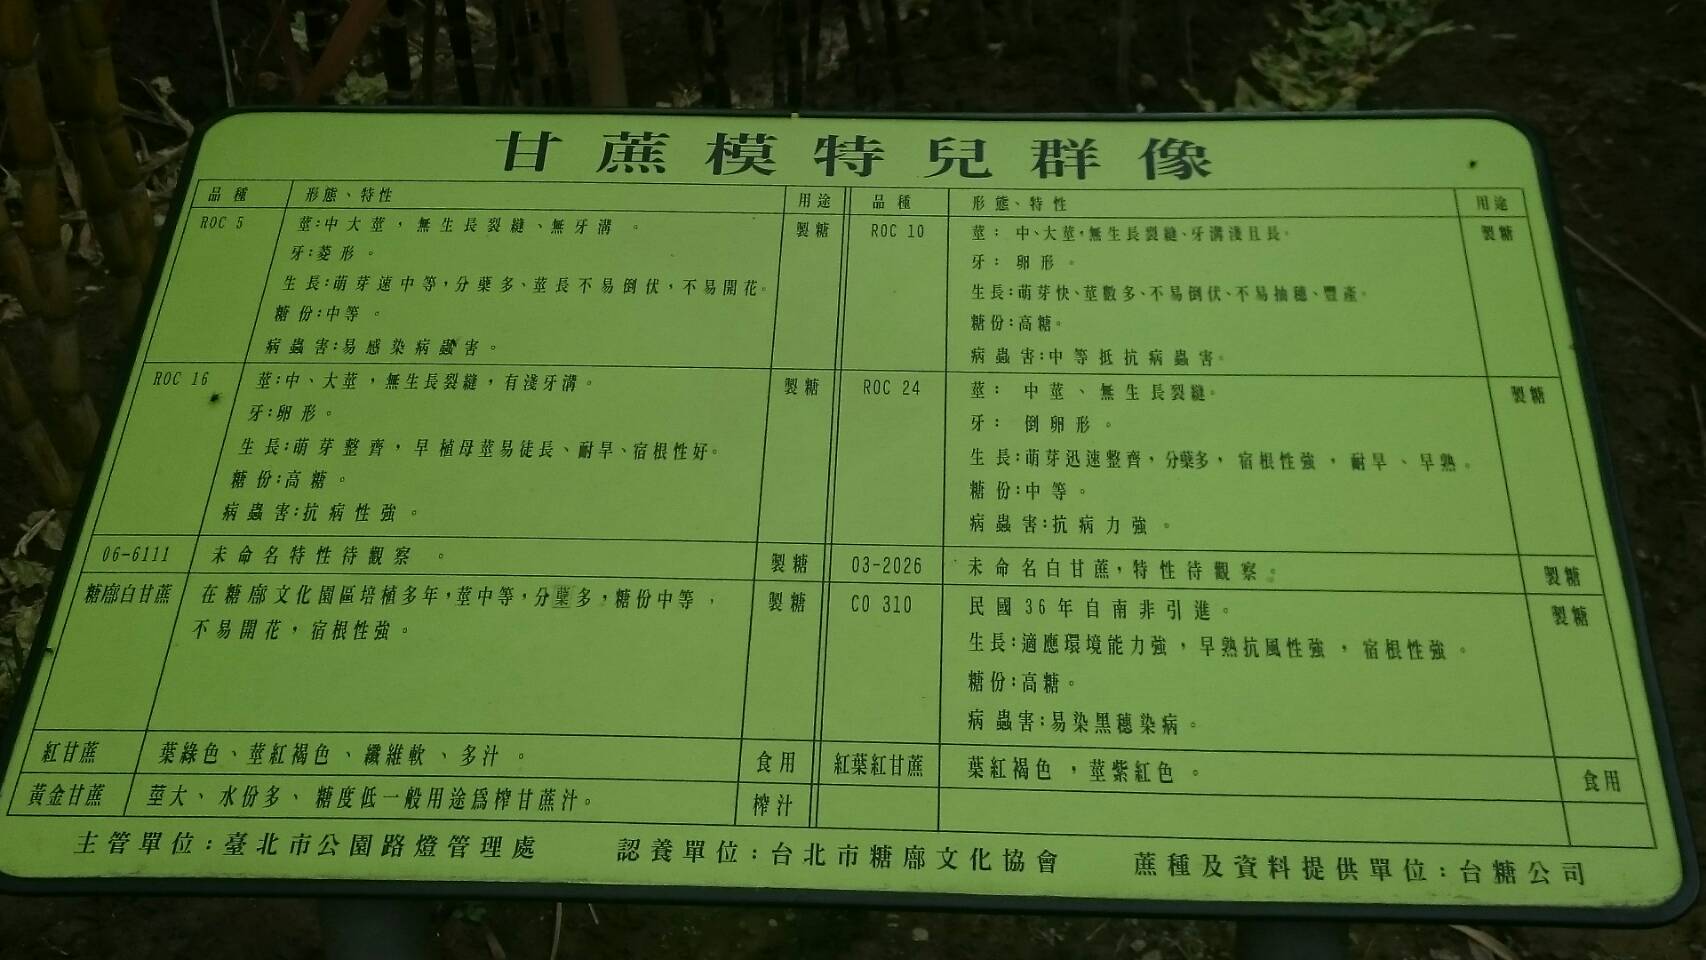 甘蔗模特兒群像
品種 形態、特性 用途
ROC 5 莖:中大莖,無生長裂縫、無牙溝。 製糖
牙:菱形。
生長:萌芽速中等,分蘗多、莖長不易倒伏,不易開花。
糖份:中等。
病蟲害:易感染病蟲害。
ROC 16 莖:中、大莖,無生長裂縫,有淺牙溝。 製糖
牙:卵形。
生長:萌芽整齊,早植母莖易徒長、耐旱、宿根性好。
糖份:高糖。
病蟲害:抗病性強。
06-6111 未命名特性待觀察。 製糖
糖廍白甘蔗 在糖廍文化園區培植多年,莖中等,分蘗多,糖份中等, 製糖
不易開花,宿根性強。
紅甘蔗 葉綠色、莖紅褐色、纖維軟、多汁。 食用
黃金甘蔗 莖大、水份多、糖度低一般用途為榨甘蔗汁。 榨汁
品種 形態、特性 用途
ROC 10 莖:中、大莖,無生長裂縫、牙溝淺且長。 製糖
牙:卵形。
生長:萌芽快、莖數多、不易倒伏、不易抽穗、豐產。
糖份:高糖。
病蟲害:中等抵抗病蟲害。
ROC 24 莖:中莖、無生長裂縫。 製糖
牙:倒卵形。
生長:萌芽迅速整齊,分蘗多,宿根性強,耐旱、早熟。
糖份:中等。
病蟲害:抗病力強。
03-2026 未命名白甘蔗,特性待觀察。 製糖
CO 310 民國36年自南非引進。 製糖
生長:適應環境能力強,早熟抗風性強,宿根性強。
糖份:高糖。
病蟲害:易染黑穗染病。
紅葉紅甘蔗 葉紅褐色,莖紫紅色。 食用
主管單位:臺北市公園路燈管理處 認養單位:台北市糖廍文化協會 蔗種及資料提供單位:台糖公司